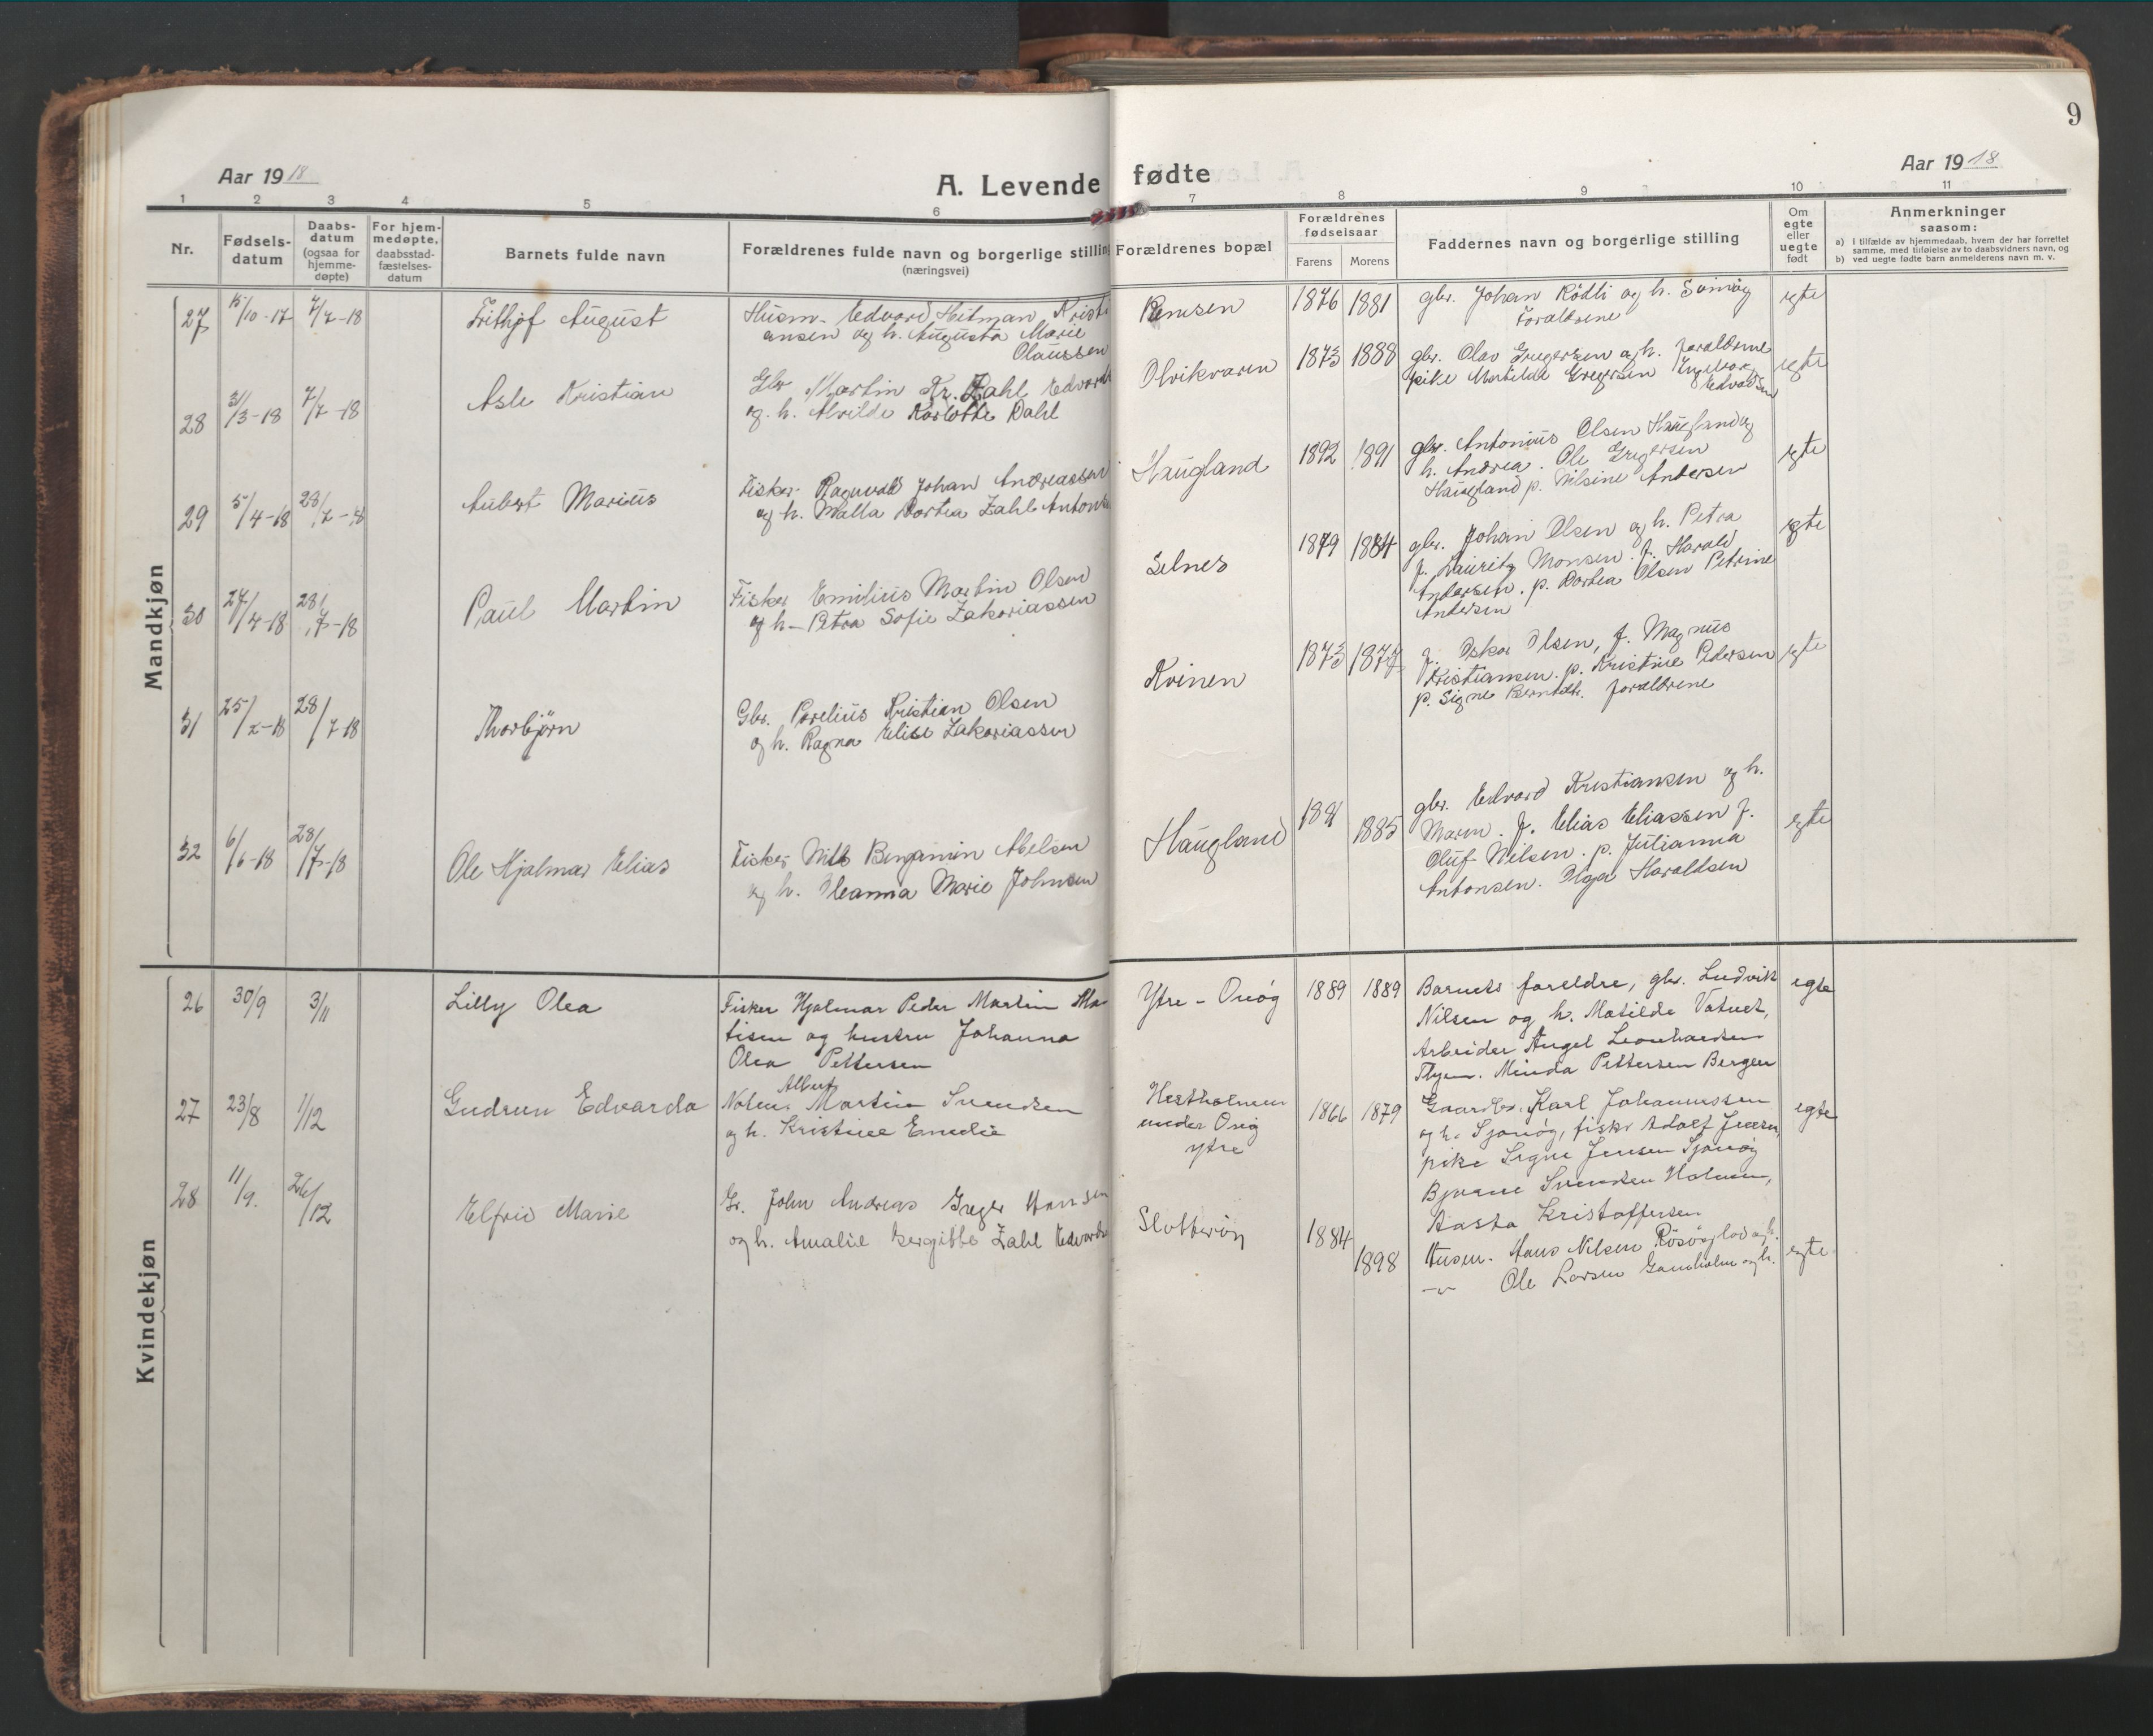 9
Aar 1918
A. Levende fødte
Aar 1918
1 2 3 4 5 6 7 8 9 10 11
Nr.
Fødsels-
datum
Daabs-
datum
(ogsaa for
hjemme-
døpte)
For hjem-
medøpte,
daabsstad-
fæstelses-
datum
Barnets fulde navn
Forældrenes fulde navn og borgerlige stilling
(næringsvei)
Forældrenes bopæl
Forældrenes
fødselsaar
Farens Morens
Faddernes navn og borgerlige stilling
Om
egte
eller
uegte
født
Anmerkninger
saasom:
a) I tilfælde av hjemmedaab, hvem der har forrettet
samme, med tilføielse av to daabsvidners navn, og
b) ved uegte fødte barn anmelderens navn m. v.
Mandkjøn
27 15/10-17 7/7-18 Frithjof August
Husm. Edvard Hitman Kristi
ansen og h. Augusta Marie
Olaussen
Remsen 1876 1881
gbr. Johan Rödli og h. Sømög
Foreldrene
egte
28 31/3-18 7/7-18 Asle Kristian
Gbr Martin Kr. Zahl Edvards
og. h. Alvilde Karlotte Dahl
Olvikvaren 1873 1888
gbr. Olav Gregersen og h. foreldrene
pike Matilde Gregersen Ingeborg
Edvardsen
egte
29 5/4-18 28/7-18 Aubert Marius
Fisker Ragnvald Johan Andreassen
og h. Malla Dortea Zahl Antons
Haugland 1892 1891
gbr. Antonius Olsen Haugland og
h. Andrea. Ole Gregersen
Haugland p. Nilsine Andersen
egte
30 27/4-18 28/7-18 Paul Martin
Fisker Emilius Martin Olsen
og h- Petra Sofie Zakariassen
Selnes 1879 1884
gbr. Johan Olsen og h. Petra
f. Lauritz Monsen. f. Harald
Andersen. p. Dortea Olsen Petrine
Andersen
egte
31 25/2-18 28/7-18 Thorbjørn
Gbr. Parelius Kristian Olsen
og h. Ragna Elise Zakariassen
Kvinen 1873 1877
g. Oskar Olsen, f. Magnus
Kristiansen. p. Kristine Pedersen
p. Signe Berntdt. foreldrene
egte
32 6/6-18 28/7-18 Ole Hjalmar Elias
Fisker Nils Benjamin Abelsen
og h. Oleanna Marie Johnsen
Haugland 1891 1885
gbr. Edvard Kristiansen og h.
Maren. f. Elias Eliassen f.
Oluf Nilsen. p. Julianna
Antonsen. Olga Haraldsen
egte
Kvindekjøn
26 30/9 3/11 Lilly Olea
Fisker Hjalmar Peder Martin Ma-
tisen og hustru Johanna
Olea Pettersen
Ytre - Onøg 1889 1889
Barnets foreldre, gbr. Ludvik
Nilsen og h. Matilde Vatnet,
Arbeider Angel Leonhardsen
Thjem. Minda Pettersen Bergen
egte
27 23/8 1/12 Gudrun Edvarda
Albert
Nolms. Martin Svendsen
og h. Kristine Emelie
Hestholmen
under Onög
ytre
1866 1879
Gaardbr. Karl Johannessen
og h. Sjonög, fisker Adolf Jensen,
pike Signe Jensen Sjonög
Bjarne Svendsen Holmen,
Aasta Kristoffersen
egte
28 11/9. 26/12 Elfrid Marie
Gr. John Andreas Greger Hansen
og h. Amalie Bergitte Zahl Edvards
Slotterøy 1884 1898
Husm. Hans Nilsen Rösöglod og h.
-"- Ole Larsen Gamholm og h.
egte